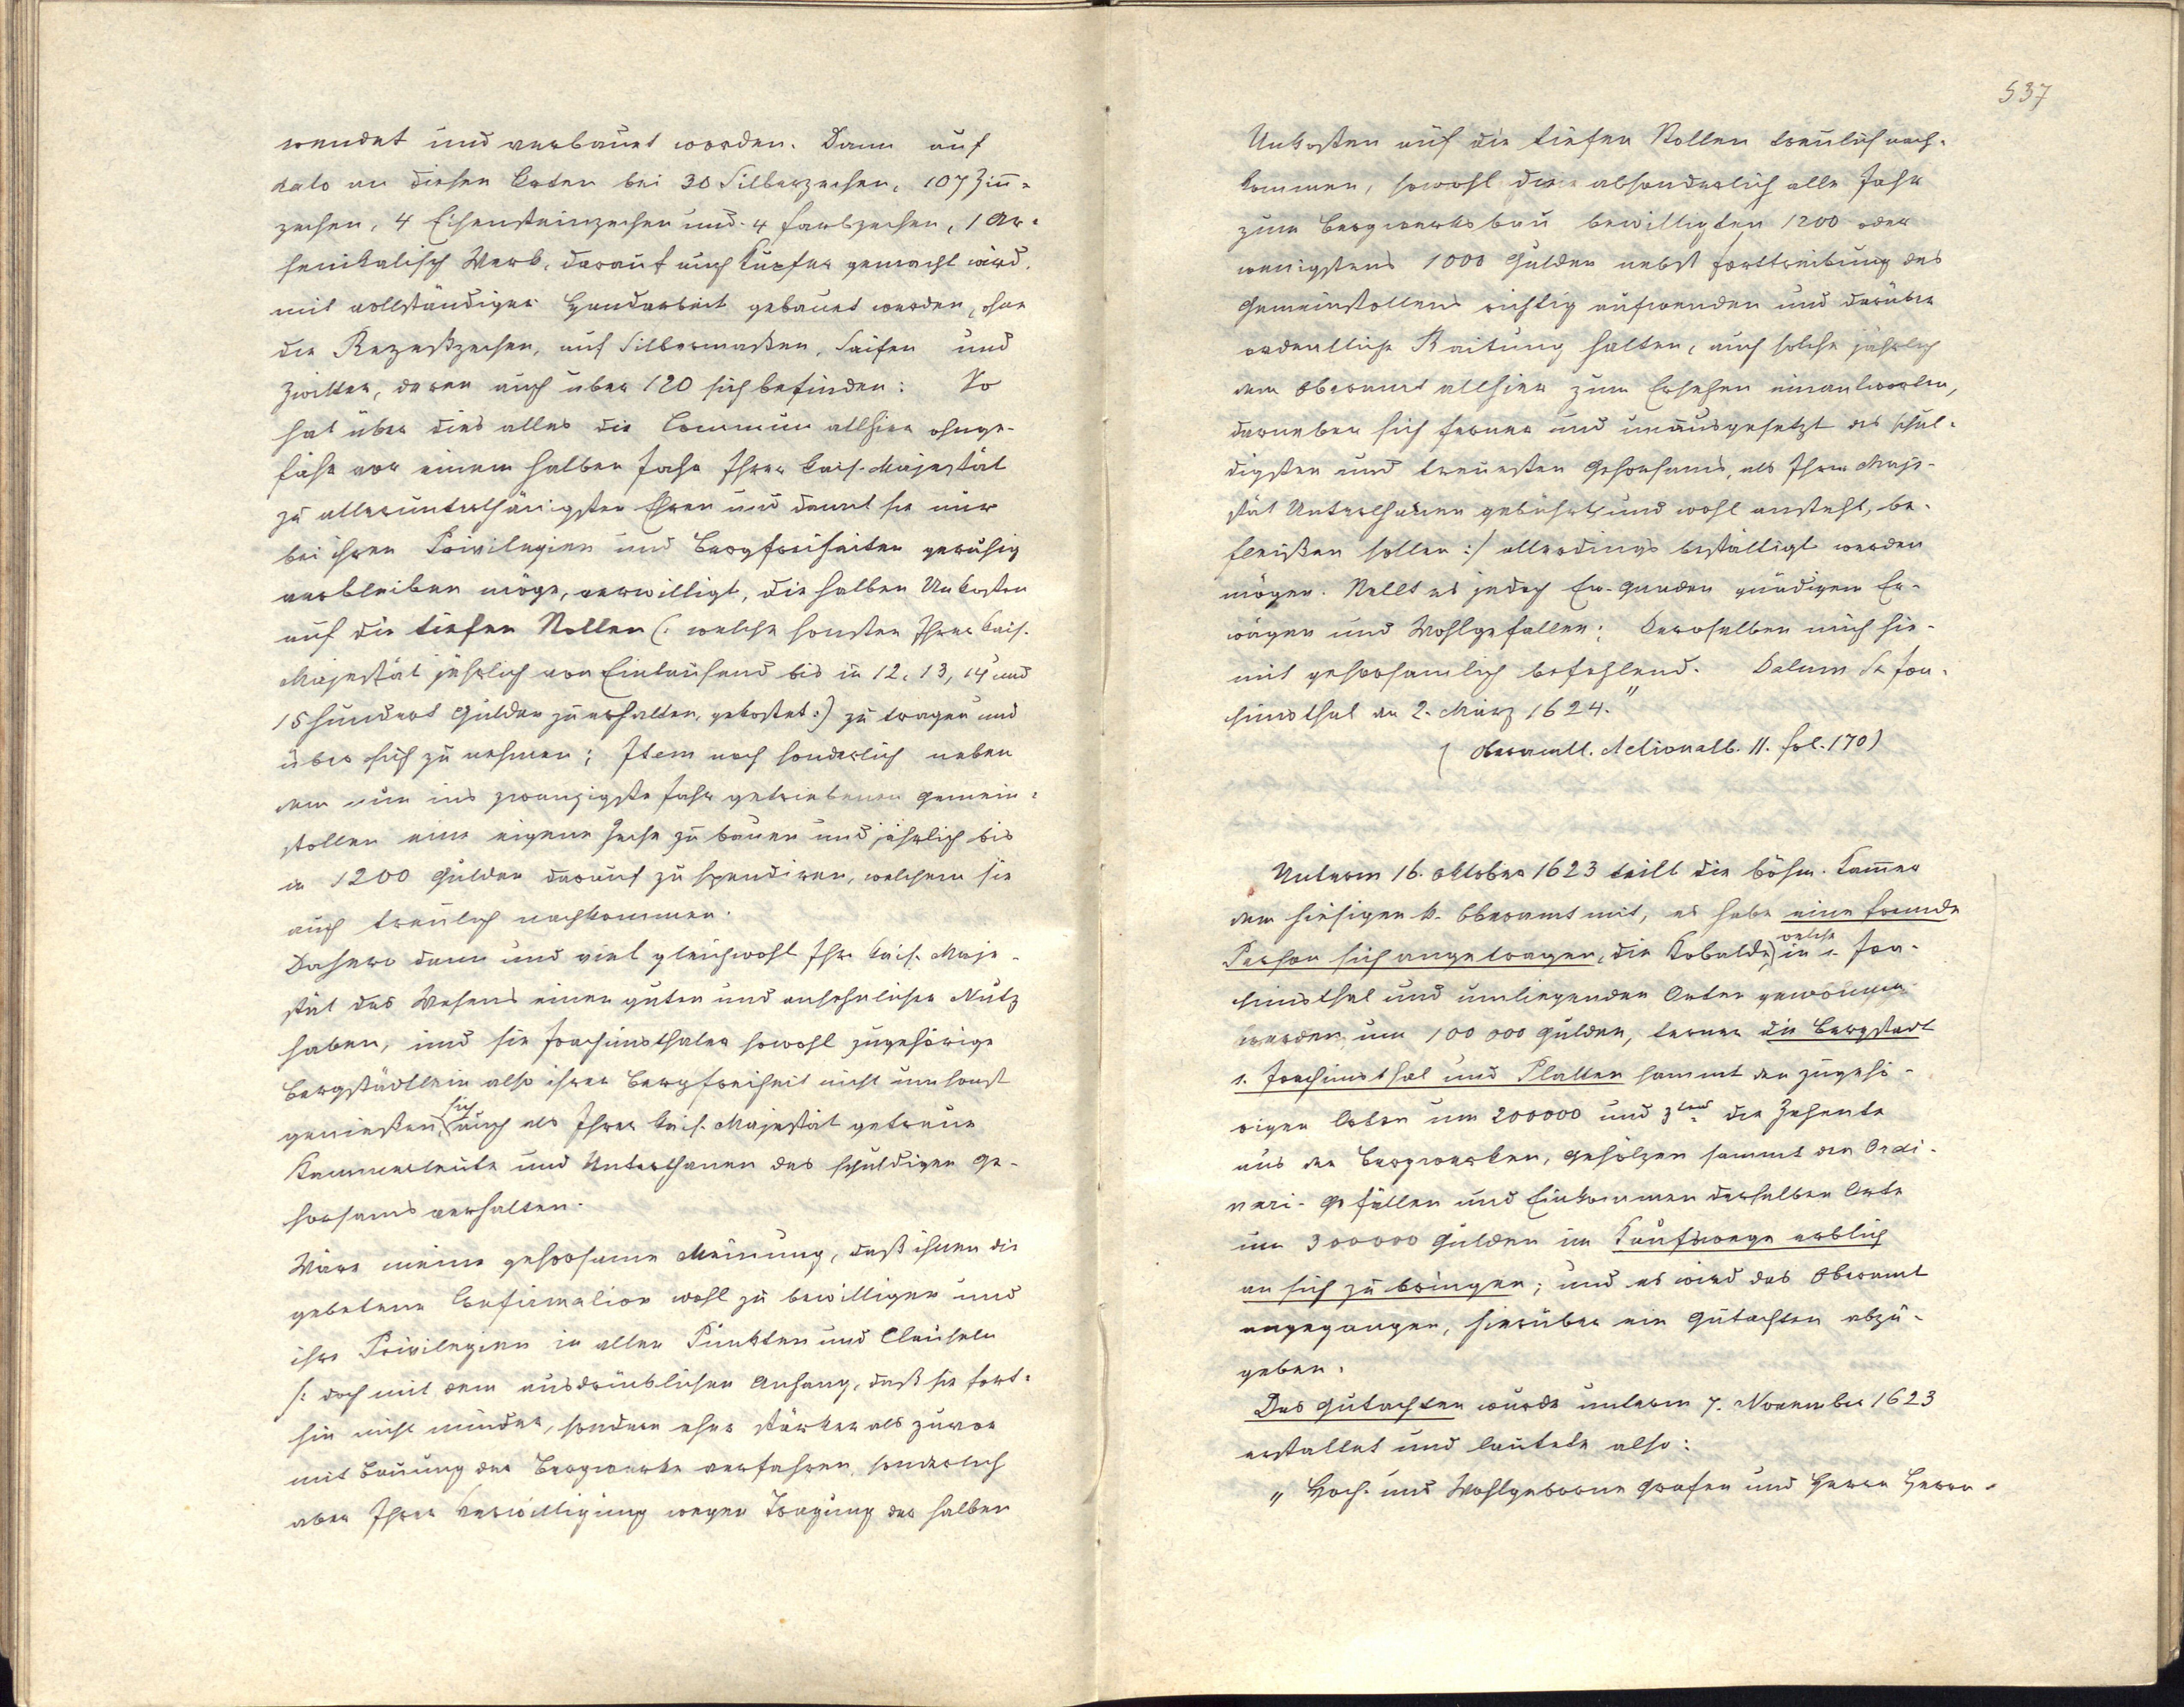 wendet und verbauet worden. Dann auf
dato an diesen Orten bei 30 Silberzechen, 107 Zinn-
zechen, 4 Eisensteinzechen und 4 Farbzechen, 1 Ar-
senikalisch Werk, darauf auch Kupfer gemacht wird,
mit vollständiger Handarbeit gebauet werden, ohne
die Rezeßzechen, auf Silbermaßen, Saifen und
Zwitter, deren auch über 120 sich befinden: So
hat über dies alles die Commun allhier ohnge-
fähr vor einem halben Jahr Ihrer kais. Majestät
zu allerunterthänigsten Ehren und damit sie nur
bei ihren Privilegien und Bergfreiheiten geruhig
verbleiben möge, verwilligt, die halben Unkosten
auf die tiefen Stollen (: welche sonsten Ihrer kais.
Majestät jährlich von Eintausend bis in 12, 13, 14 und
15 hundert Gulden zu erhalten, gekostet :) zu tragen und
über sich zu nehmen; Item noch sonderlich neben
dem nun ins zwanzigste Jahr getriebenen Gemein-
stollen eine eigene Zeche zu bauen und jährlich bis
in 1200 Gulden darauf zu spendiren, welchem sie
auch treulich nachkommen.
Dahero dann und viel gleichwohl Ihr kais. Maje-
stät des Wesens einen guten und ansehnlichen Nutz
haben, und sie Joachimsthaler sowohl zugehörige
Bergstädtlein also ihrer Bergfreiheit nicht umsonst
genießen, sich auch als Ihrer kais. Majestät getreue
Kammerleute und Unterthanen des schuldigen Ge-
horsams verhalten.
Wäre meine gehorsame Meinung, daß ihnen die
gebetene Confirmation wohl zu bewilligen und
ihre Privilegien in allen Punkten und Clauseln
/: doch mit dem ausdrücklichen Anhang, daß sie fort-
hin nicht minder, sondern eher stärker als zuvor
mit Bauung der Bergwerke verfahren, sonderlich
aber Ihrer Verwilligung wegen Tragung der halben
537
Unkosten auf die tiefen Stollen treulich nach-
kommen, sowohl die absonderlich alle Jahr
zum Bergwerksbau bewilligten 1200 oder
wenigstens 1000 Gulden nebst Forttreibung des
Gemeinstollens richtig aufwenden und darüber
ordentliche Raitung halten, auch solche jährlich
dem Oberamt allhier zum Ersehen einantworten,
darneben sich ferner und unausgesetzt des schul-
digsten und treuesten Gehorsams, als Ihrer Maje-
stät Unterthanen gebührt und wohl ansteht, be-
fleißen sollen :/ allerdings bestätigt werden
mögen. Stellt es jedoch Ew. Gnaden gnädigem Er-
wägen und Wohlgefallen: Deroselben mich hie-
mit gehorsamlich befehlend. Datum St. Joa-
chimsthal den 2. März 1624."
( Oberamtl. Actionalb. 11. fol. 170)
Unterm 16. Oktober 1623 teilt die böhm. Kammer
dem hiesigen k. Oberamt mit, es habe eine fremde
Person sich angetragen, die Kobalde, welche in s. Joa-
chimsthal und umliegenden Orten gewonnen
werden, um 100 000 Gulden, ferner die Bergstadt
s. Joachimsthal und Platten sammt den zugehö-
rigen Orten um 200000 und 3tens die Zehente
aus den Bergwerken, Gehölzen sammt den Ordi-
nari-Gefällen und Einkommen derselben Orte
um 300000 Gulden im Kaufswege erblich
an sich zu bringen; und es wird das Oberamt
angegangen, hierüber ein Gutachten abzu-
geben.
Das Gutachten wurde unterm 7. November 1623
erstattet und lautete also:
„Hoch- und Wohlgeborne Grafen und Herrn Herrn.